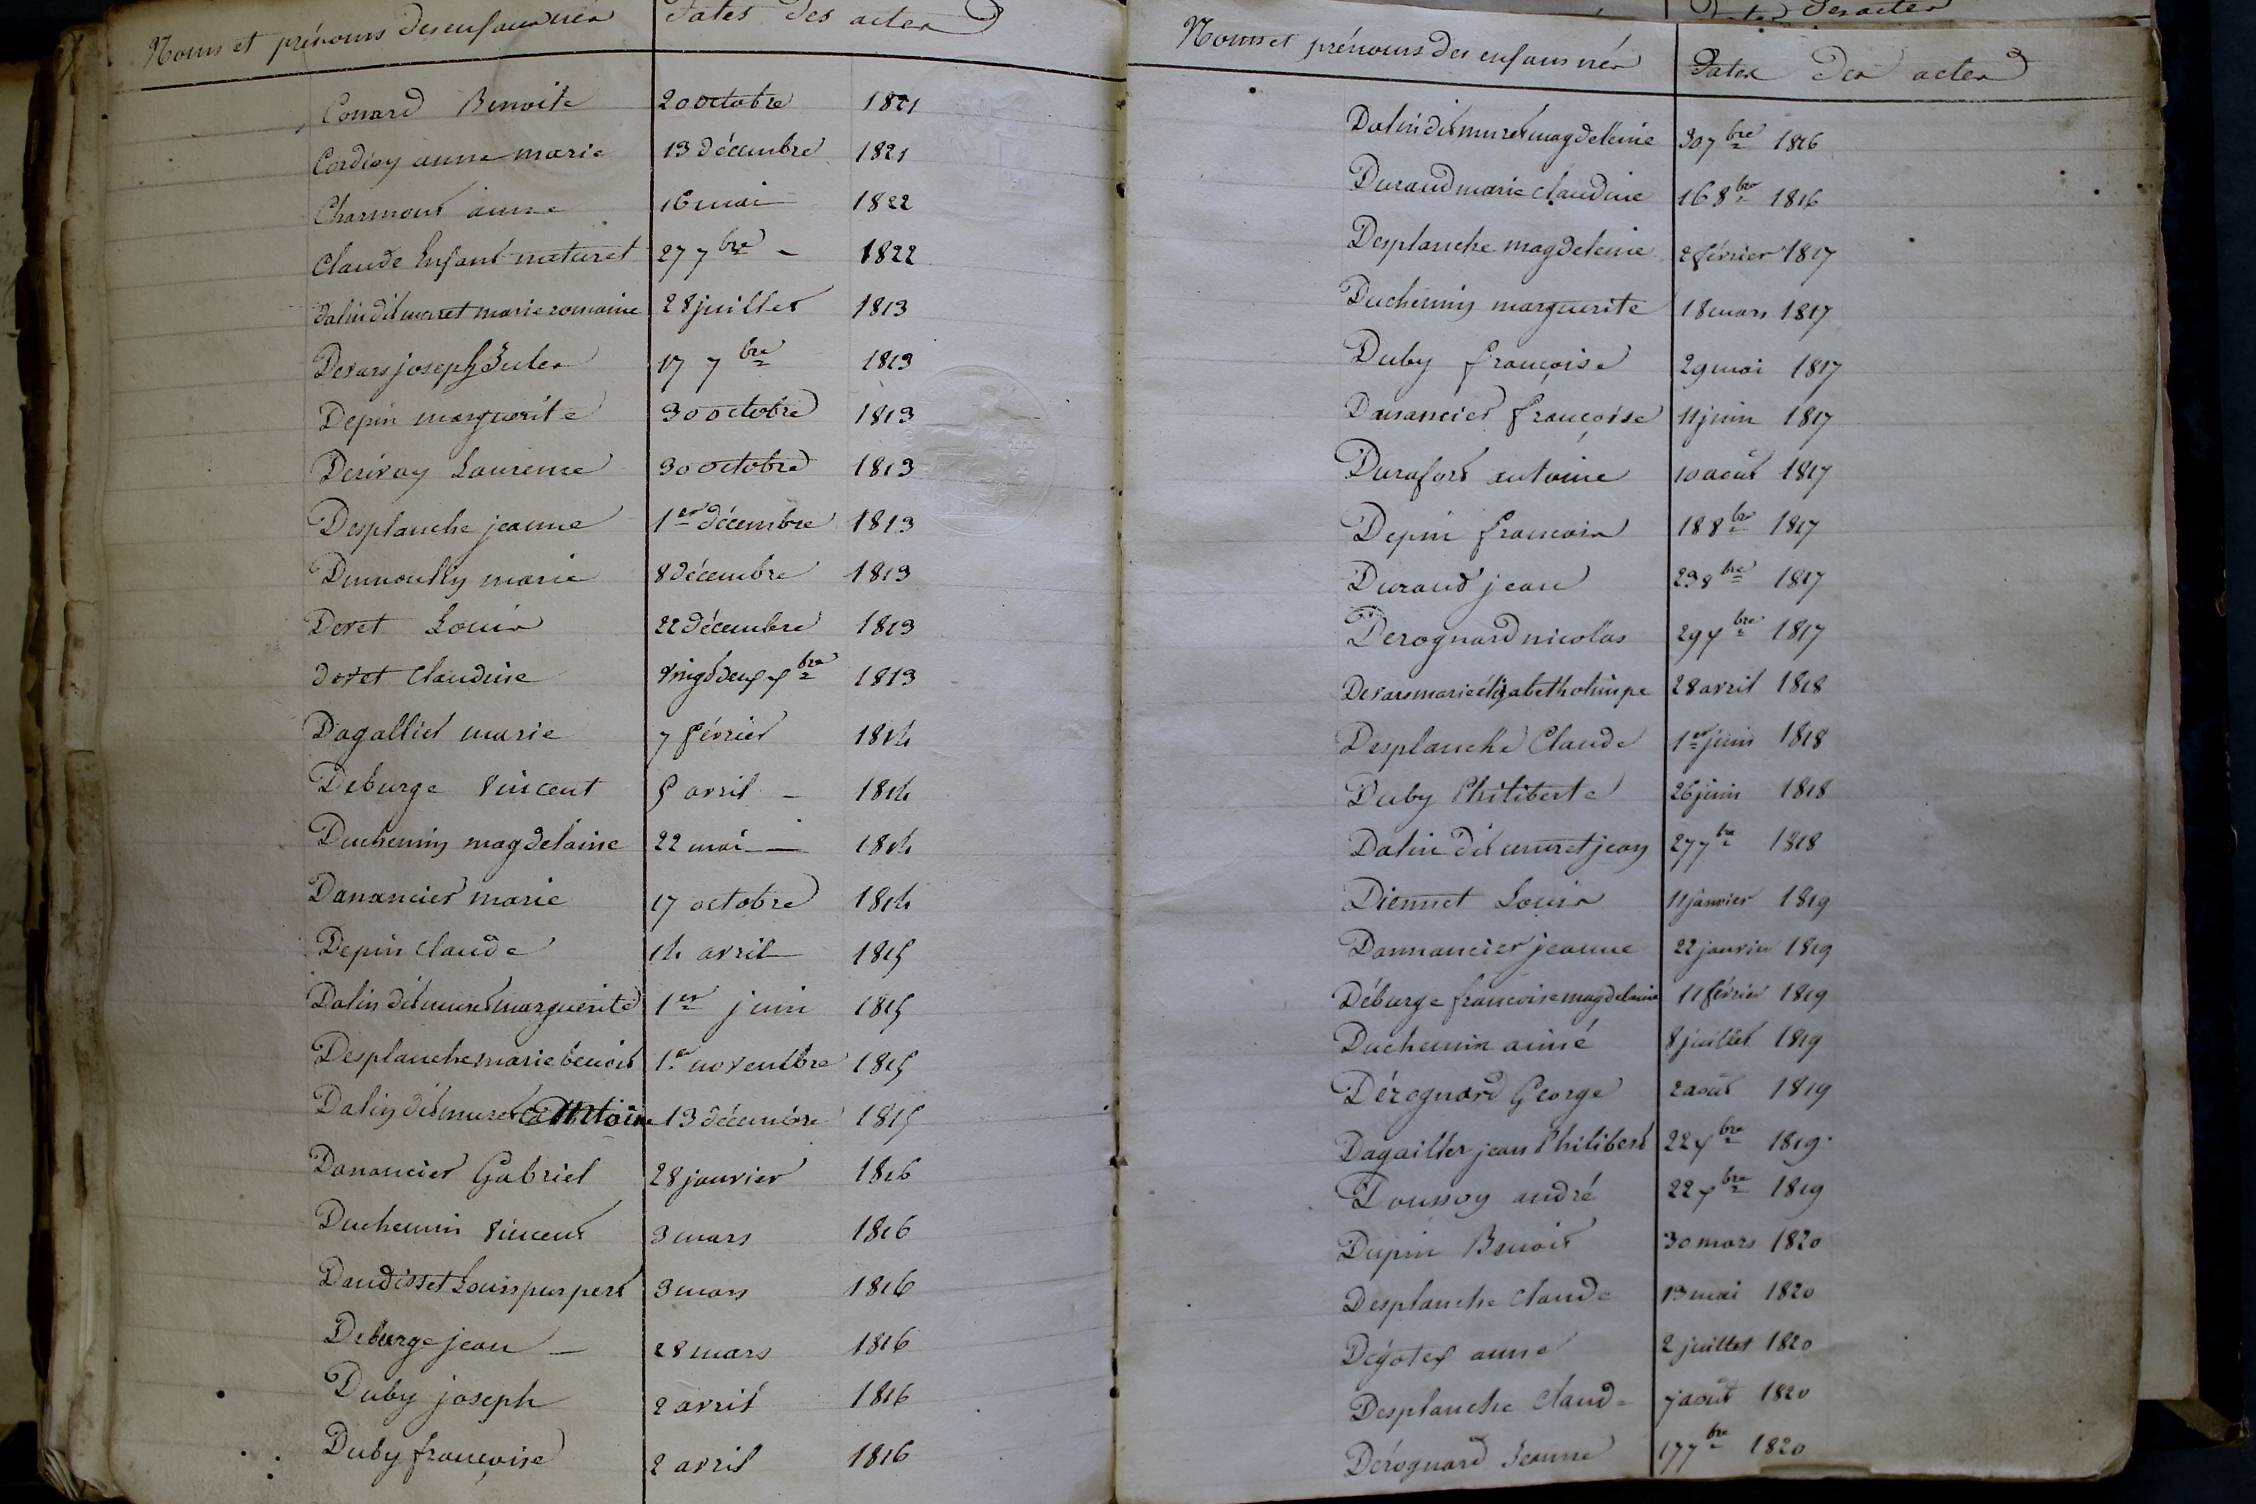 Noms et prénoms des enfans nés Dates des actes
Conard Benoite 20 octobre 1821
Cordioy anne marie 13 décembre 1821
Charmont anne 16 mai - 1822
Claude Enfant naturel 27 7bre - 1822
Dalin dit muret marie romaine 28 juillet 1813
Devars joseph Jules 17 7bre 1813
Depin marguerite 30 octobre 1813
Derivoy Laurence 30 octobre 1813
Desplanche jeanne 1er décembre 1813
Dumoutly marie 8 décembre 1813
Doret Louis 22 décembre 1813
doret Claudine vingt deux xbre 1813
Dagallier marie 7 février 1814
Deburge Vincent 5 avril - 1814
Duchemin magdelaine 22 mai - 1814
Danancier marie 17 octobre 1814
Depin claude 14 avril 1815
Dalin dit muret marguerite 1er juin 1815
Desplanche marie benoit 1er novembre 1815
Dalin dit muret Antoine 13 décembre 1815
Danancier Gabriel 28 janvier 1816
Duchemin Vincent 3 mars 1816
Daudisset Louis purpert 3 mars 1816
Deburge jean - 28 mars 1816
Duby joseph 2 avril 1816
Duby françoise 2 avril 1816
Noms et prénoms des enfans nés Dates des actes
Dalin dit muret magdeleine 30 7bre 1816
Durand marie claudine 16 8bre 1816
Desplanche magdeleine 2 février 1817
Duchemin marguerite 18 mars 1817
Duby françoise 29 mai 1817
Danancier françoise 11 juin 1817
Durafort antoine 10 août 1817
Depin françois 18 8bre 1817
Durand jean 23 8bre 1817
Derognard nicolas 29 xbre 1817
Devars marie élizabeth olimpe 28 avril 1818
Desplanche Claude 1er juin 1818
Duby Philiberte 26 juin 1818
Dalin dit muret jean 27 7bre 1818
Diennet Louis 11 janvier 1819
Dannancier jeanne 22 janvier 1819
Déburge françoise magdelaine 11 février 1819
Duchemin aimé 8 juillet 1819
Dérognard George 2 août 1819
Dagallier jean Philibert 22 xbre 1819
Doussoy andré 22 xbre 1819
Dupin Benoit 30 mars 1820
Desplanche claude 13 mai 1820
Dégotex anne 2 juillet 1820
Desplanche Claude 7 août 1820
Dérognard Jeanne 17 7bre 1820